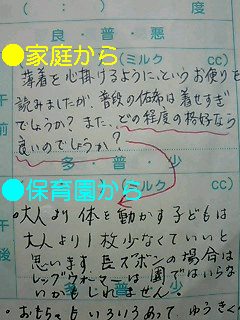 ( : ) 度
良・普・悪
●家庭から
(ミルク CC)
薄着を心掛けるように、というお便りを
読みましたが、普段の佑希は着せすぎ
でしょうか？また、どの程度の格好なら
良いのでしょうか？
午前
多・普・少
●保育園から
(ミルク CC)
・大人より体を動かす子どもは
大人より1枚少なくていいと
思います。長ズボンの場合は
レッグウォーマーは園ではいらな
いかもしれません。
午後
多・普・少
・おもちゃもいろいろあって、ゆうきく